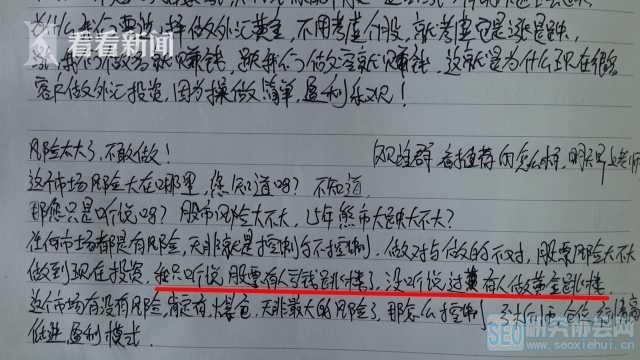 为什么我们要选择做外汇黄金,不用考虑个股,就考虑它是涨是跌
涨我们做多就赚钱,跌我们做空就赚钱,这就是为什么现在很多
客户做外汇投资,因为操做简单,盈利乐观!
看看新闻
风险太大了,不敢做!
观望群 看推荐的怎么样,明天早上老师
这个市场风险大在哪里,您知道吗? 不知道
那您只是听说吗? 股市风险大不大,15年熊市大跌大不大?
任何市场都是有风险,无非就是控制与不控制,做对与做的不对,股票风险大不大
做到现在投资,我只听说股票有亏钱跳楼了,没听说过有人做黄金跳楼
这个市场有没有风险,肯定有,爆仓,无非最大的风险了,那怎么控制
低进,盈利模式
SEO研究协会网
www.seoxiehui.cn